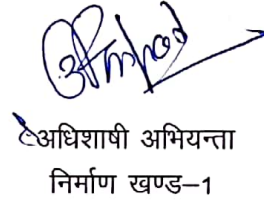 अधिशाषी अभियन्ता
निर्माण खण्ड–1